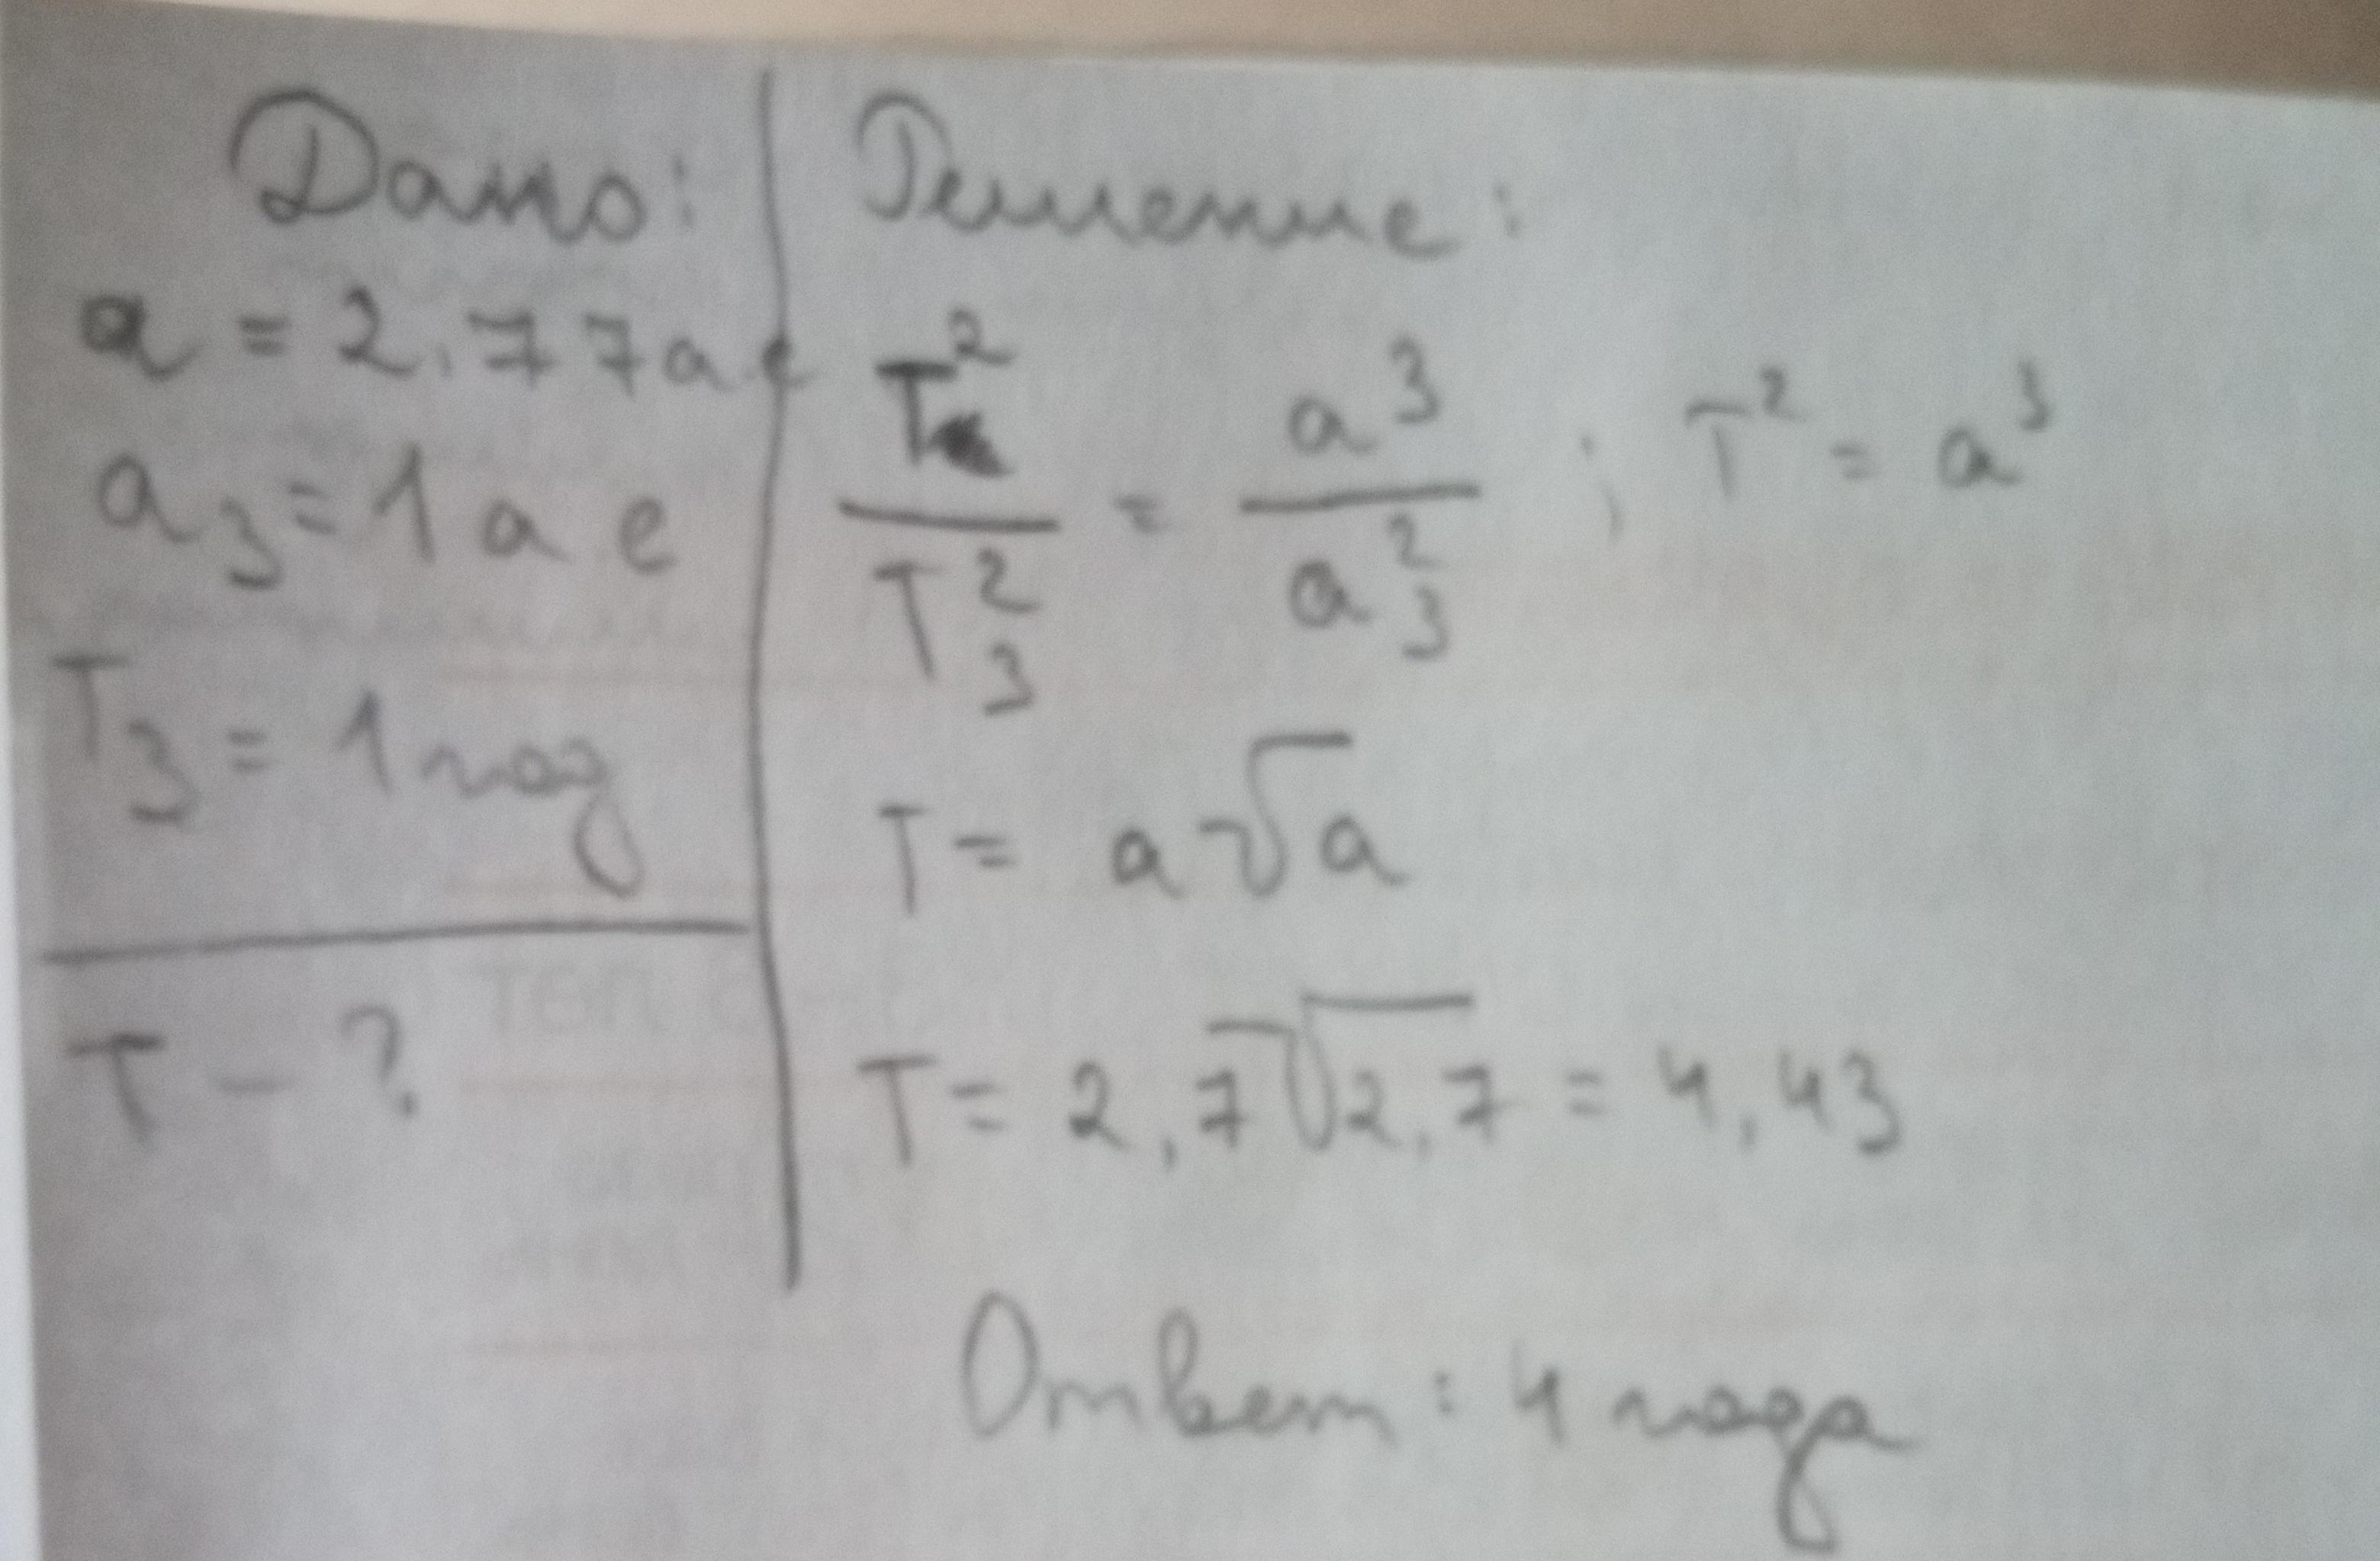 Дано:
a = 2,77 а е
a₃ = 1 а е
T₃ = 1 год
T – ?
Решение:
T²/T₃² = a³/a₃² ; T² = a³
T = a√a
T = 2,7√2,7 = 4,43
Ответ: 4 года